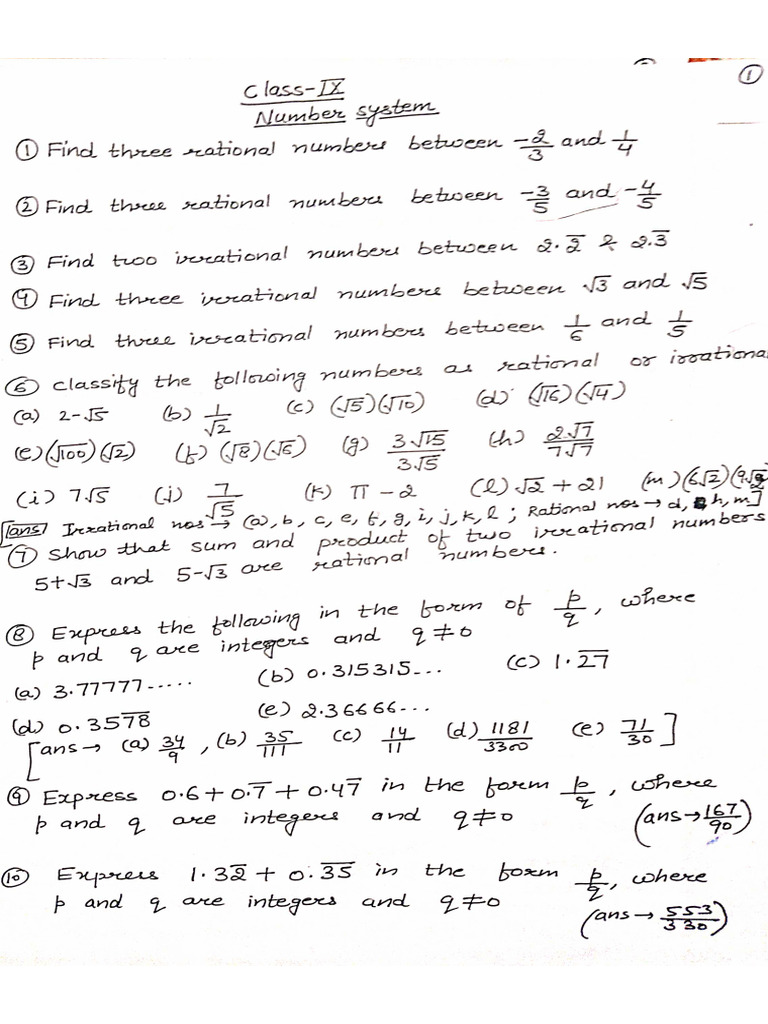 ①
Class-IX
Number system
① Find three rational numbers between -2/3 and 1/4
② Find three rational numbers between -3/5 and -4/5
③ Find two irrational numbers between 2.2̅ & 2.3̅
④ Find three irrational numbers between √3 and √5
⑤ Find three irrational numbers between 1/6 and 1/5
⑥ Classify the following numbers as rational or irrational
(a) 2-√5 (b) 1/√2 (c) (√5)(√10) (d) (√16)(√4)
(e) (√100)(√2) (f) (√8)(√6) (g) 3√15/3√5 (h) 2√7/7√7
(i) 7√5 (j) 7/√5 (k) π-2 (l) √2+21 (m) (6√2)(9√2
[ans] Irrational nos → (a, b, c, e, f, g, i, j, k, l ; Rational nos → d, h, m]
⑦ Show that sum and product of two irrational numbers
5+√3 and 5-√3 are rational numbers.
⑧ Express the following in the form of p/q, where
p and q are integers and q≠0
(a) 3.77777..... (b) 0.315315... (c) 1.2̅7̅
(d) 0.357̅8̅ (e) 2.36666...
[ans → (a) 34/9, (b) 35/111 (c) 14/11 (d) 1181/3300 (e) 71/30]
⑨ Express 0.6+0.7̅+0.47̅ in the form p/q, where
p and q are integers and q≠0 (ans → 167/90)
⑩ Express 1.32̅ + 0.3̅5̅ in the form p/q, where
p and q are integers and q≠0 (ans → 553/330)